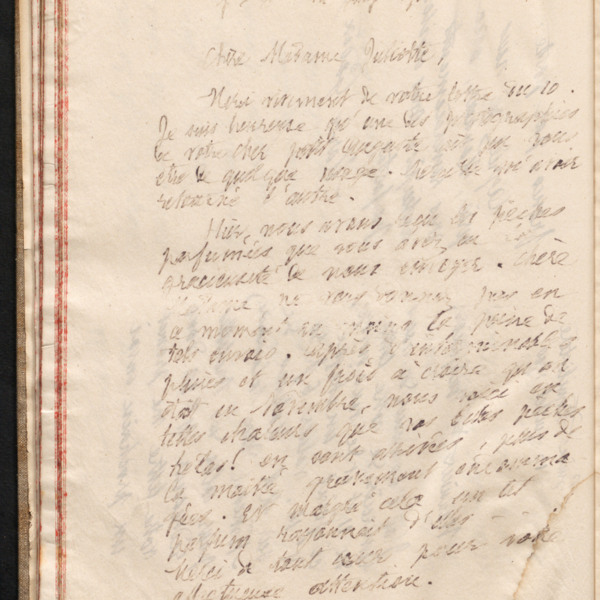 Chère Madame Juliette,
Merci vivement de votre lettre du 10.
Je suis heureuse qu'une des photographies
de votre cher petit ait pu vous
être de quelque usage. Merci de m'avoir
retourné l'autre.
Hier, nous avons reçu les pêches
parfumées que vous avez eu la
gracieuseté de nous envoyer. Chère
Madame ne vous donnez pas en
ce moment la peine de
tels envois. Après d'interminables
pluies et un froid à croire qu'on
était en novembre, nous voici en
telles chaleurs que vos belles pêches
hélas! en sont arrivées, plus de
la moitié
Et malgré cela un tel
parfum rayonnait d'elles
Merci de tout cœur pour votre
affectueuse attention.